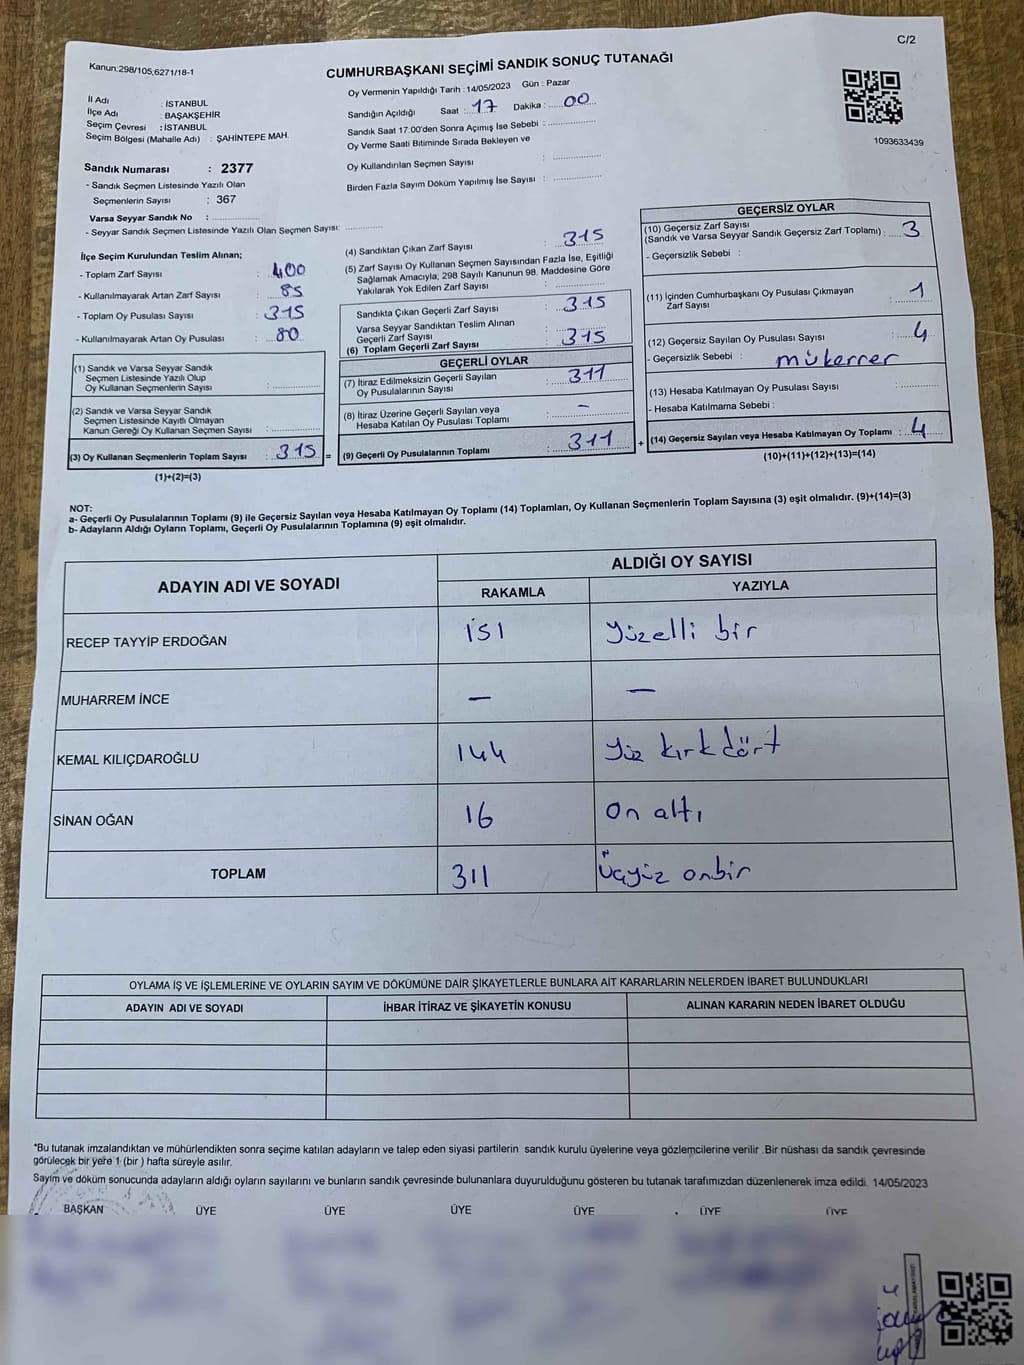 C/2
Kanun:298/105,6271/18-1
CUMHURBAŞKANI SEÇİMİ SANDIK SONUÇ TUTANAĞI
İl Adı : İSTANBUL
İlçe Adı : BAŞAKŞEHİR
Seçim Çevresi : İSTANBUL
Seçim Bölgesi (Mahalle Adı) : ŞAHİNTEPE MAH.
Oy Vermenin Yapıldığı Tarih : 14/05/2023 Gün : Pazar
Sandığın Açıldığı Saat : 17 Dakika : 00
Sandık Saat 17:00'den Sonra Açımış İse Sebebi :
Oy Verme Saati Bitiminde Sırada Bekleyen ve
Oy Kullandırılan Seçmen Sayısı :
Birden Fazla Sayım Döküm Yapılmış İse Sayısı :
1093633439
Sandık Numarası : 2377
- Sandık Seçmen Listesinde Yazılı Olan
Seçmenlerin Sayısı : 367
Varsa Seyyar Sandık No :
- Seyyar Sandık Seçmen Listesinde Yazılı Olan Seçmen Sayısı:
İlçe Seçim Kurulundan Teslim Alınan;
- Toplam Zarf Sayısı : 400
- Kullanılmayarak Artan Zarf Sayısı : 85
- Toplam Oy Pusulası Sayısı : 315
- Kullanılmayarak Artan Oy Pusulası : 80
(1) Sandık ve Varsa Seyyar Sandık
Seçmen Listesinde Yazılı Olup
Oy Kullanan Seçmenlerin Sayısı :
(2) Sandık ve Varsa Seyyar Sandık
Seçmen Listesinde Kayıtlı Olmayan
Kanun Gereği Oy Kullanan Seçmen Sayısı :
(3) Oy Kullanan Seçmenlerin Toplam Sayısı : 315 =
(1)+(2)=(3)
(4) Sandıktan Çıkan Zarf Sayısı : 315
(5) Zarf Sayısı Oy Kullanan Seçmen Sayısından Fazla İse, Eşitliği
Sağlamak Amacıyla, 298 Sayılı Kanunun 98. Maddesine Göre
Yakılarak Yok Edilen Zarf Sayısı :
Sandıkta Çıkan Geçerli Zarf Sayısı : 315
Varsa Seyyar Sandıktan Teslim Alınan
Geçerli Zarf Sayısı :
(6) Toplam Geçerli Zarf Sayısı : 315
GEÇERLİ OYLAR
(7) İtiraz Edilmeksizin Geçerli Sayılan
Oy Pusulalarının Sayısı : 311
(8) İtiraz Üzerine Geçerli Sayılan veya
Hesaba Katılan Oy Pusulası Toplamı : –
(9) Geçerli Oy Pusulalarının Toplamı : 311 +
GEÇERSİZ OYLAR
(10) Geçersiz Zarf Sayısı
(Sandık ve Varsa Seyyar Sandık Geçersiz Zarf Toplamı) : 3
- Geçersizlik Sebebi :
(11) İçinden Cumhurbaşkanı Oy Pusulası Çıkmayan
Zarf Sayısı : 1
(12) Geçersiz Sayılan Oy Pusulası Sayısı : 4
- Geçersizlik Sebebi : mükerrer
(13) Hesaba Katılmayan Oy Pusulası Sayısı :
- Hesaba Katılmama Sebebi :
(14) Geçersiz Sayılan veya Hesaba Katılmayan Oy Toplamı : 4
(10)+(11)+(12)+(13)=(14)
NOT:
a- Geçerli Oy Pusulalarının Toplamı (9) ile Geçersiz Sayılan veya Hesaba Katılmayan Oy Toplamı (14) Toplamları, Oy Kullanan Seçmenlerin Toplam Sayısına (3) eşit olmalıdır. (9)+(14)=(3)
b- Adayların Aldığı Oyların Toplamı, Geçerli Oy Pusulalarının Toplamına (9) eşit olmalıdır.
ADAYIN ADI VE SOYADI
ALDIĞI OY SAYISI
RAKAMLA YAZIYLA
RECEP TAYYİP ERDOĞAN 151 Yüzelli bir
MUHARREM İNCE — —
KEMAL KILIÇDAROĞLU 144 Yüz kırk dört
SİNAN OĞAN 16 On altı
TOPLAM 311 Üçyüz onbir
OYLAMA İŞ VE İŞLEMLERİNE VE OYLARIN SAYIM VE DÖKÜMÜNE DAİR ŞİKAYETLERLE BUNLARA AİT KARARLARIN NELERDEN İBARET BULUNDUKLARI
ADAYIN ADI VE SOYADI İHBAR İTİRAZ VE ŞİKAYETİN KONUSU ALINAN KARARIN NEDEN İBARET OLDUĞU
*Bu tutanak imzalandıktan ve mühürlendikten sonra seçime katılan adayların ve talep eden siyasi partilerin sandık kurulu üyelerine veya gözlemcilerine verilir .Bir nüshası da sandık çevresinde
görülecek bir yere 1 (bir ) hafta süreyle asılır.
Sayım ve döküm sonucunda adayların aldığı oyların sayılarını ve bunların sandık çevresinde bulunanlara duyurulduğunu gösteren bu tutanak tarafımızdan düzenlenerek imza edildi. 14/05/2023
BAŞKAN ÜYE ÜYE ÜYE ÜYE ÜYE ÜYE